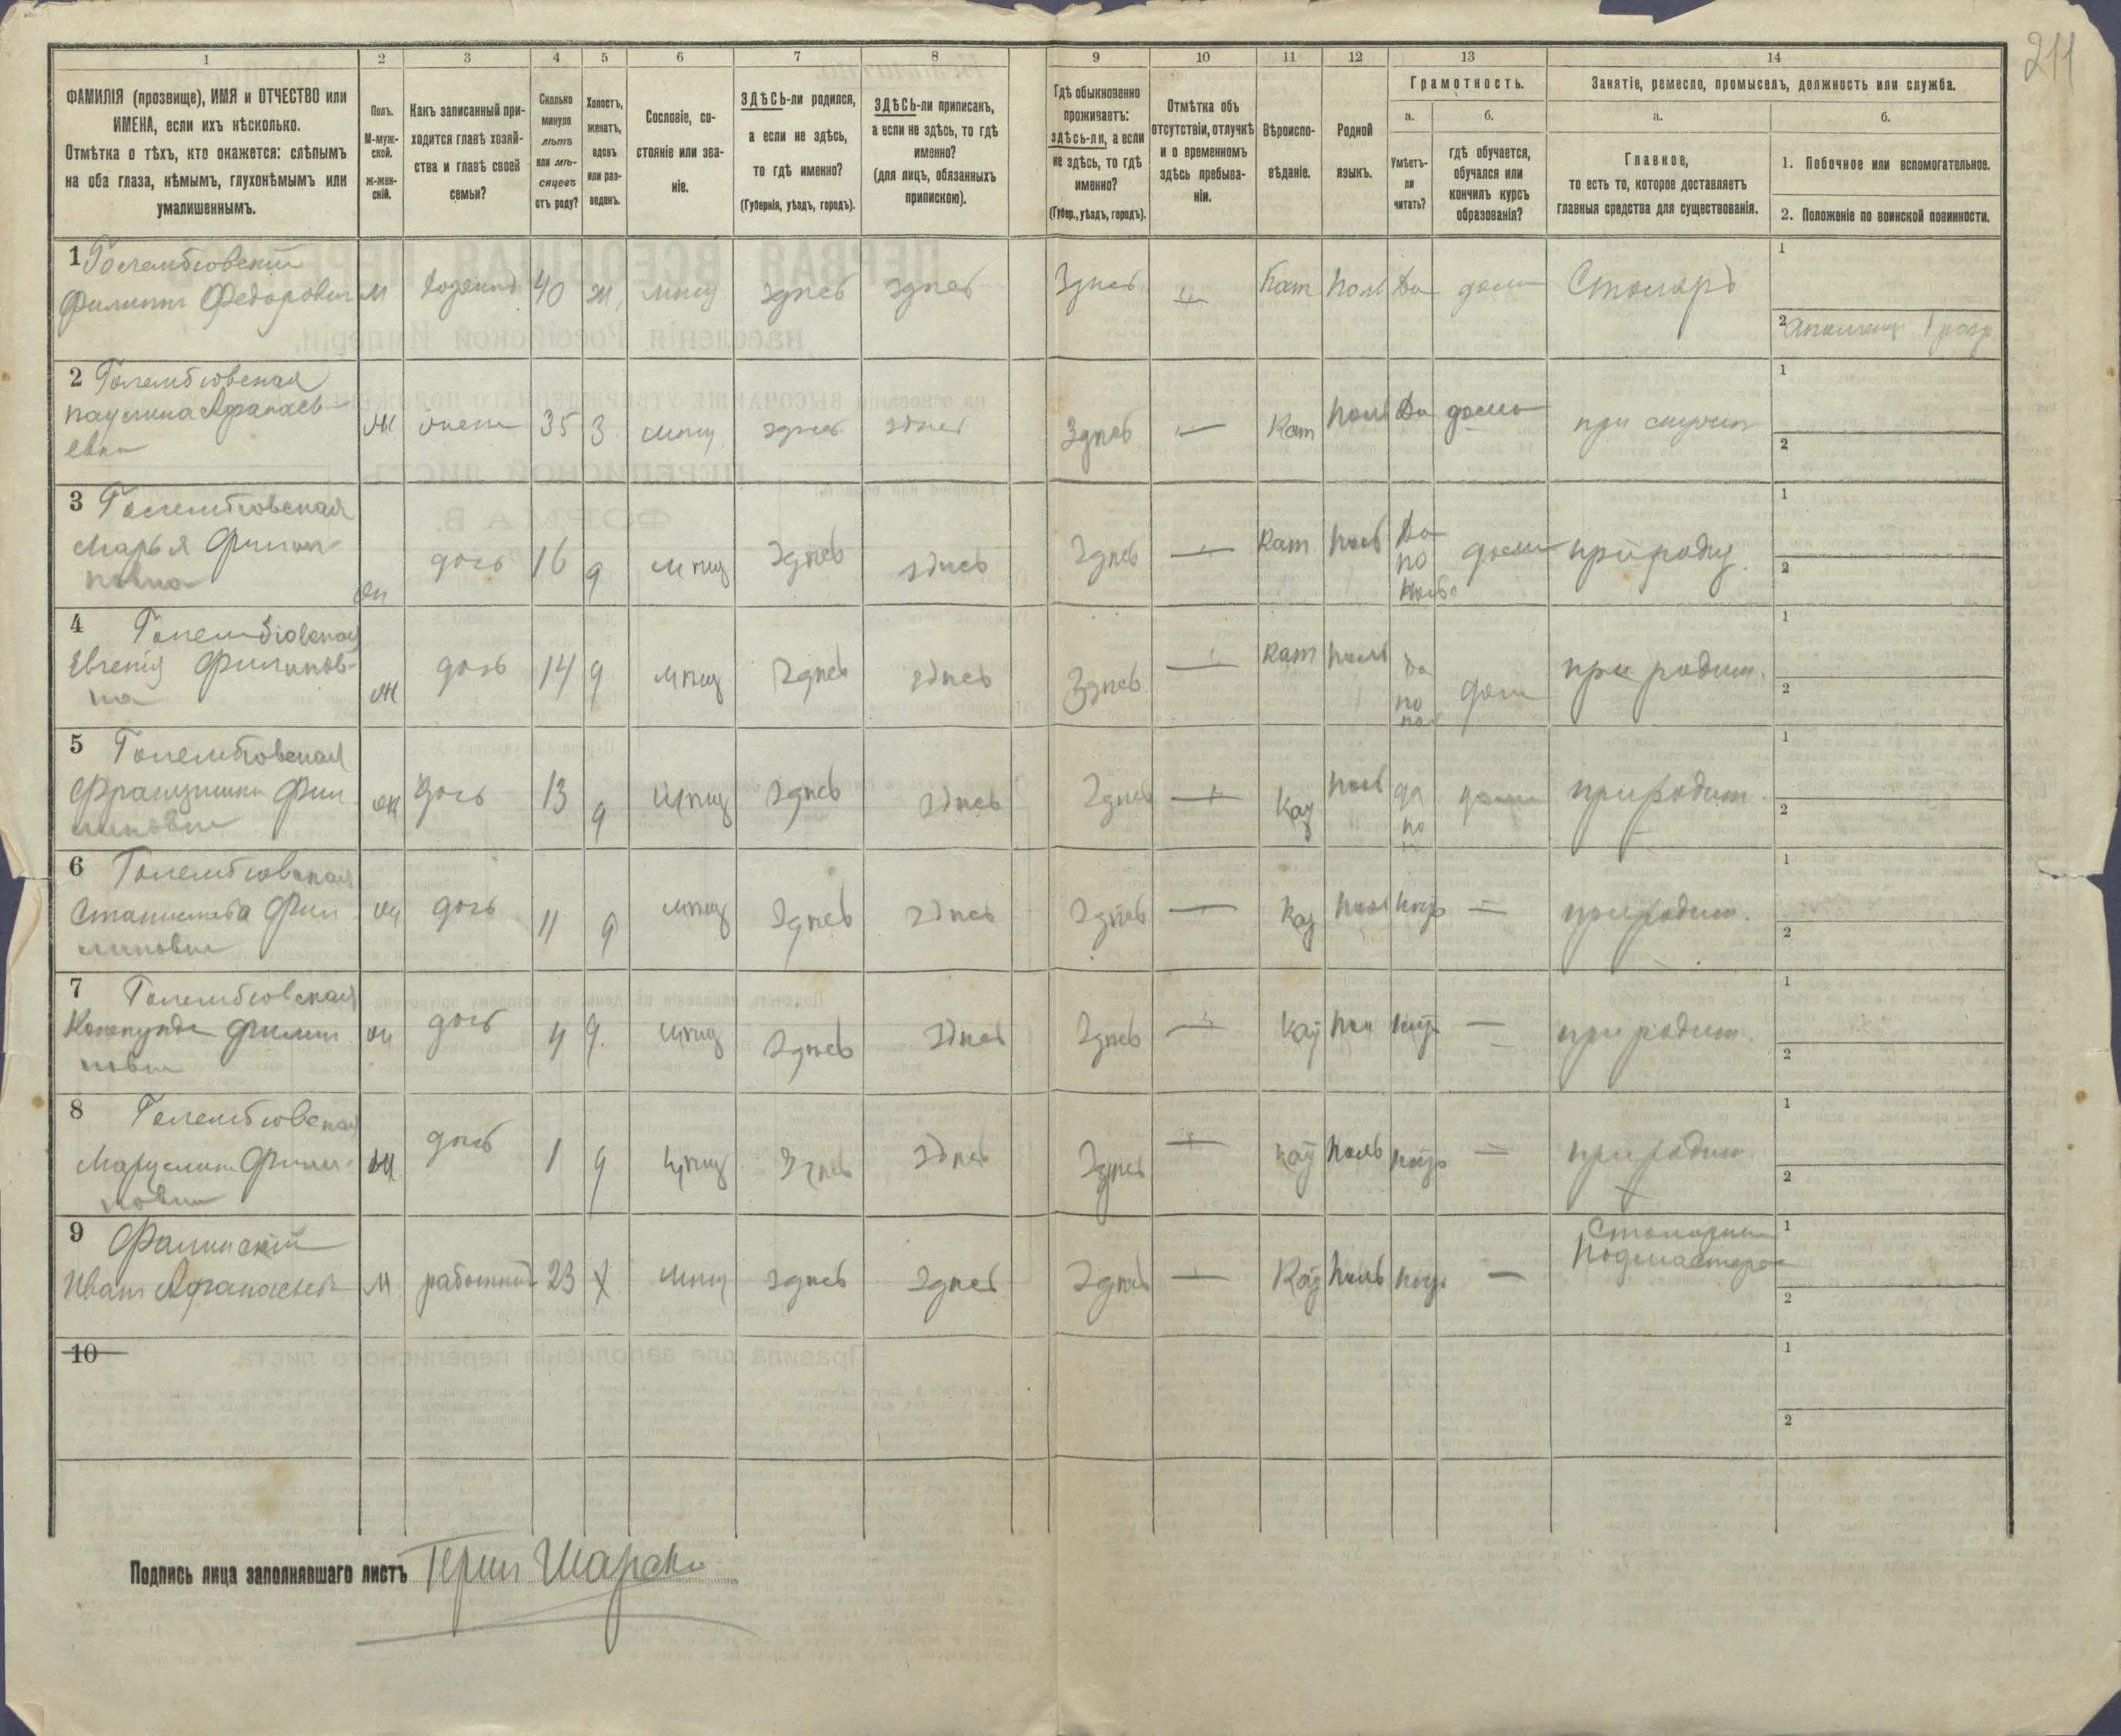 211
1 2 3 4 5 6 7 8 9 10 11 12 13 14
ФАМИЛІЯ (прозвище), ИМЯ и ОТЧЕСТВО или
ИМЕНА, если ихъ нѣсколько.
Отмѣтка о тѣхъ, кто окажется: слѣпымъ
на оба глаза, нѣмымъ, глухонѣмымъ или
умалишеннымъ.
Полъ.
М-муж-
ской.
ж-жен-
скій.
Какъ записанный при-
ходится главѣ хозяй-
ства и главѣ своей
семьи?
Сколько
минуло
лѣтъ
или мѣ-
сяцевъ
отъ роду?
Холостъ,
женатъ,
вдовъ
или раз-
веденъ.
Сословіе, со-
стояніе или зва-
ніе.
ЗДѢСЬ-ли родился,
а если не здѣсь,
то гдѣ именно?
(Губернія, уѣздъ, городъ).
ЗДѢСЬ-ли приписанъ,
а если не здѣсь, то гдѣ
именно?
(для лицъ, обязанныхъ
припискою).
Гдѣ обыкновенно
проживаетъ:
здѣсь-ли, а если
не здѣсь, то гдѣ
именно?
(Губер., уѣздъ, городъ).
Отмѣтка объ
отсутствіи, отлучкѣ
и о временномъ
здѣсь пребыва-
ніи.
Вѣроиспо-
вѣданіе.
Родной
языкъ.
Грамотность.
а.
Умѣетъ-
ли
читать?
б.
гдѣ обучается,
обучался или
кончилъ курсъ
образованія?
Занятіе, ремесло, промыселъ, должность или служба.
а.
Главное,
то есть то, которое доставляетъ
главныя средства для существованія.
б.
1. Побочное или вспомогательное.
2. Положеніе по воинской повинности.
1 Голембіовскій
Филиппъ Федоровичъ М 40 ж мѣщ здѣсь здѣсь Здѣсь — Кат Пол Да дома Столяръ
1
2 1 разр
2 Голембіовская
Паулина Афанась-
евна Ж жена 35 З мѣщ здѣсь здѣсь Здѣсь — Кат Поль Да дома
1
2
3 Голембіовская
Марья Филип-
повна ж дочь 16 д мѣщ Здѣсь здѣсь Здѣсь — Кат поль Да по дома при роди
1
2
4 Голембіовская
Евгенія Филипов-
на ж дочь 14 д мѣщ Здѣсь здѣсь Здѣсь — Кат поль да по пол дома при родит.
1
2
5 Голембіовская
Францишка Фил
иповна ж дочь 13 д мѣщ Здѣсь здѣсь Здѣсь — поль да по дома при родит
1
2
6 Голембіовская
Станислава Фил
иповна ж дочь 11 д мѣщ Здѣсь здѣсь Здѣсь — пол — при родит.
1
2
7 Голембіовская
Филип
повна ж дочь 4 д. мѣщ Здѣсь здѣсь Здѣсь — пол — при родит.
1
2
8 Голембіовская
Филип-
повна ж дочь 1 д мѣщ Здѣсь здѣсь Здѣсь — поль — при родит
1
2
9
Иванъ Афанасьев М работник 23 Х мѣщ здѣсь здѣсь Здѣсь — поль — Подмастерье
1
2
10
1
2
Подпись лица заполнявшаго листъ